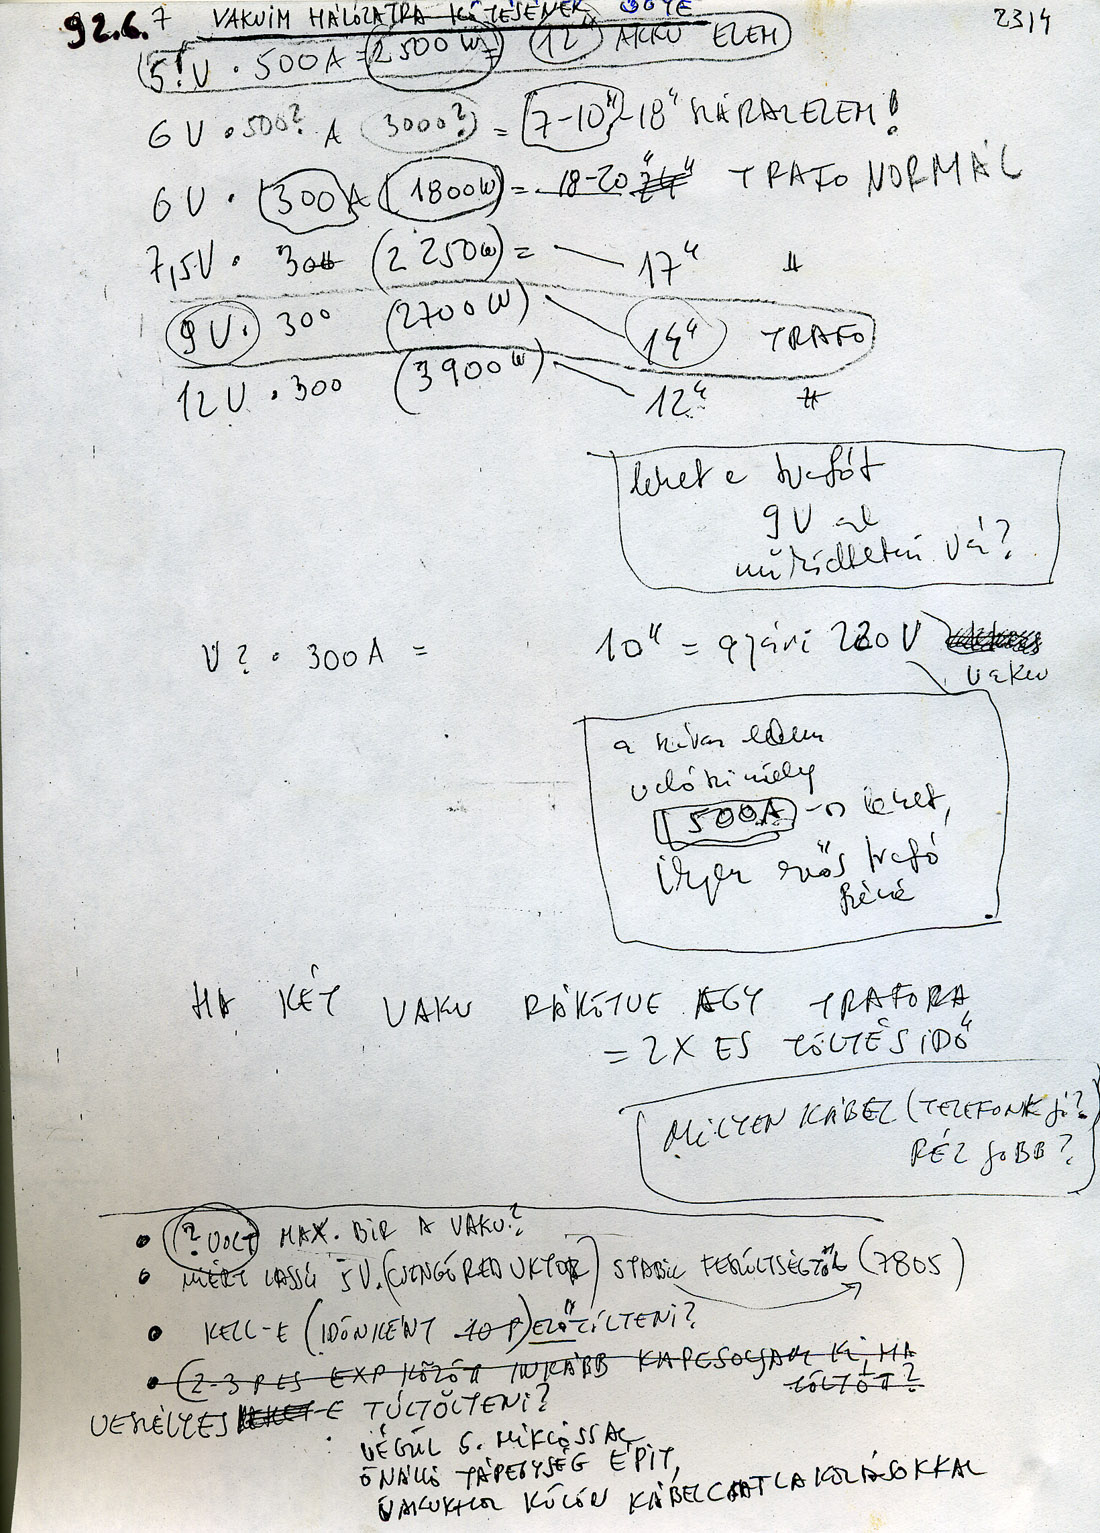 92.6.7 VAKUIM HÁLÓZATRA KÖTÉSÉNEK ÜGYE 23/4
5!V · 500A = 2500W = 12" AKKU ELEM
6 V · 500? A (3000?) = 7-10"-18" SZÁRAZELEM!
6 V · 300A (1800W) = 18-20" 24" TRAFO NORMÁL
7,5V · 300 (2250W) = 17" "
9V · 300 (2700W) 14" TRAFO
12V · 300 (3900W) 12" "
lehet e trafót
9V al
működtetni vá?
V? · 300A = 10" = gyári 220V
vaku
a száraz elem
500A -os lehet,
ilyen erős trafó
HA KÉT VAKU RÁKÖTVE EGY TRAFORA
= 2X ES TÖLTÉSIDŐ
MILYEN KÁBEL (TELEFONK jó?
RÉZ JOBB?
• ? VOLT MAX. BIR A VAKU?
• MIÉRT LASSÚ 5V. (CSENGŐREDUKTOR) STABIL FESÜLTSÉGTŐL (7805)
• KELL-E (IDŐNKÉNT 10 P) ELŐTÖLTENI?
• (2-3 P ES EXP KÖZÖTT INKÁBB KAPCSOLJAM KI, HA
TÖLTÖTT?
VESZÉLYES LEHET-E TÚLTÖLTENI?
VÉGÜL G. MIKLÓSSAL
ÖNÁLLÓ TÁPEGYSÉG ÉPIT,
VAKUKHOZ KÜLÖN KÁBELCSATLAKOZÁSOKKAL